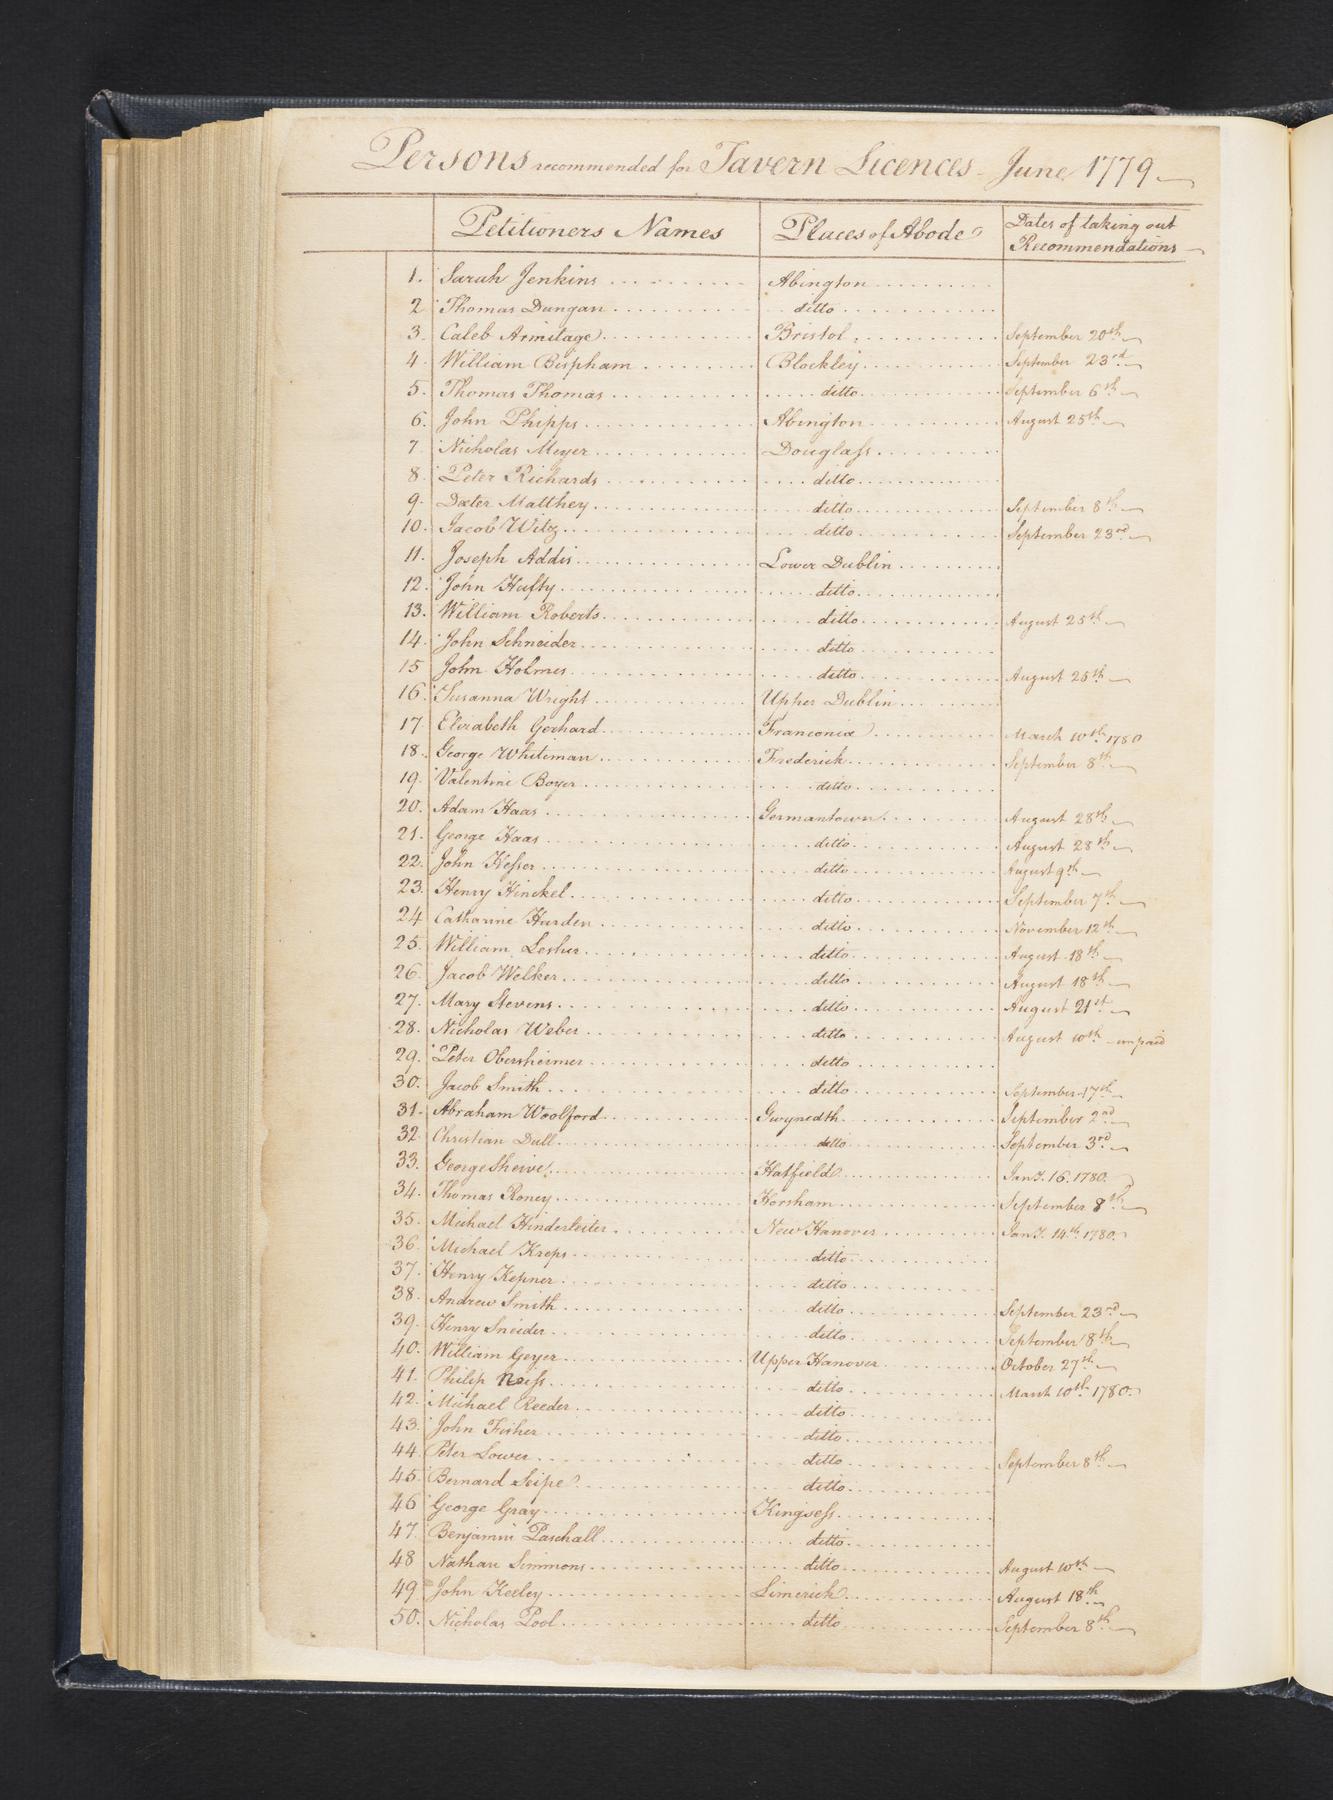 Persons recommended for Tavern Licences - June 1779
Petitioners Names Places of Abode Dates of taking out Recommendations
1. Sarah Jenkins Abington
2 Thomas Dungan ditto
3. Caleb Armitage Bristol September 20th
4. William Bispham Blockley September 23rd
5. Thomas Thomas ditto September 6th
6. John Phipps Abington August 25th
7. Nicholas Meyer Douglass
8. Peter Richards ditto
9. Deter Matthey ditto September 8th
10. Jacob Witz ditto September 23rd
11. Joseph Addis Lower Dublin
12. John Hufty ditto
13. William Roberts ditto August 25th
14. John Schneider ditto
15 John Holmes ditto August 25th
16. Susanna Wright Upher Dublin
17. Elizabeth Gerhard Franconia March 10th 1780
18. George Whiteman Frederick September 8th
19. Valentine Boyer ditto
20. Adam Haas Germantown August 28th
21. George Haas ditto August 28th
22. John Hesser ditto August 9th
23. Henry Hinckel ditto September 7th
24 Catharine Harden ditto November 12th
25. William Lesher ditto August 18th
26. Jacob Welker ditto August 18th
27. Mary Stevens ditto August 21st
28. Nicholas Weber ditto August 10th - unpaid
29. Peter Obersheimer ditto
30. Jacob Smith ditto September 17th
31. Abraham Woolford Gwynedth September 2nd
32. Christian Dull ditto September 3rd
33. George Sheive Hatfield Jany. 16. 1780.
34. Thomas Roney Horsham September 8th
35. Michael Hinderleiter New Hanover Jany. 14th 1780.
36. Michael Kreps ditto
37. Henry Kepner ditto
38. Andrew Smith ditto September 23rd
39. Henry Sneider ditto September 8th
40. William Geyer Upper Hanover October 27th
41. Philip Neiss ditto March 10th 1780.
42. Michael Reeder ditto
43. John Fisher ditto
44. Peter Lower ditto September 8th
45. Bernard Seipe ditto
46 George Gray Kingsess
47. Benjamin Paschall ditto
48 Nathan Simmons ditto August 10th
49 John Keeley Limerick August 18th
50. Nicholas Pool ditto September 8th